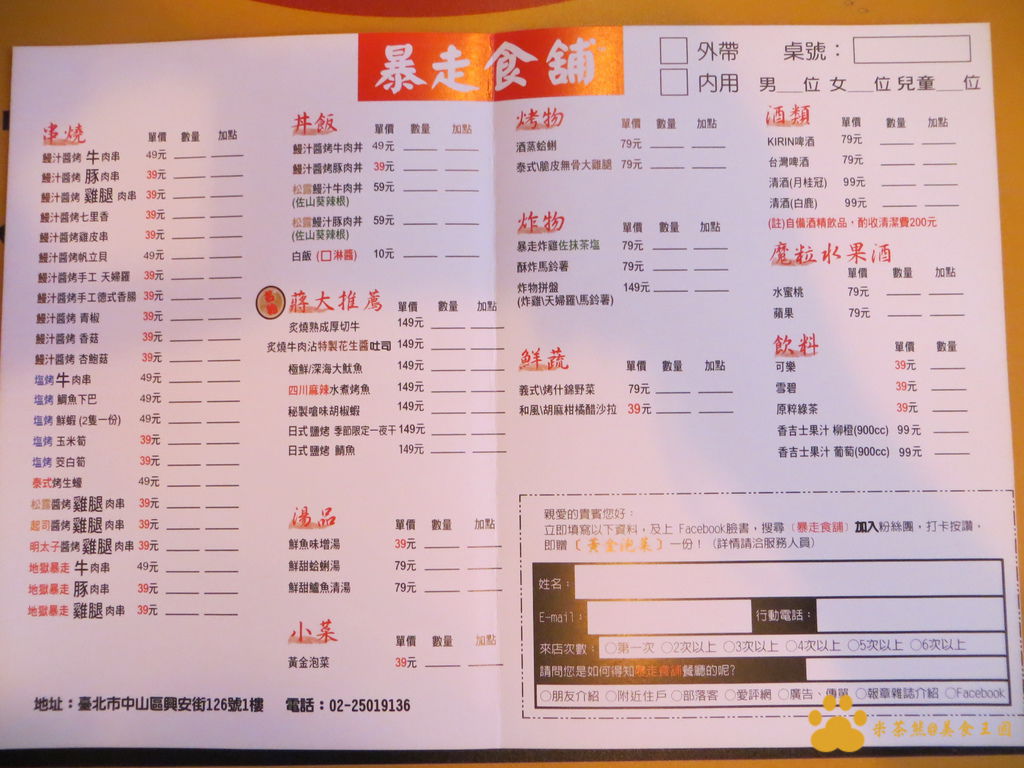 暴走食舖
外帶 桌號：
內用 男___位 女___位 兒童___位
串燒 單價 數量 加點
鰻汁醬烤 牛肉串 49元
鰻汁醬烤 豚肉串 39元
鰻汁醬烤 雞腿 肉串 39元
鰻汁醬烤七里香 39元
鰻汁醬烤雞皮串 39元
鰻汁醬烤帆立貝 49元
鰻汁醬烤手工 天婦羅 39元
鰻汁醬烤手工德式香腸 39元
鰻汁醬烤 青椒 39元
鰻汁醬烤 香菇 39元
鰻汁醬烤 杏鮑菇 39元
塩烤 牛肉串 49元
塩烤 鯛魚下巴 49元
塩烤 鮮蝦 (2隻一份) 49元
塩烤 玉米筍 39元
塩烤 茭白筍 39元
泰式烤生蠔 49元
松露醬烤 雞腿 肉串 39元
起司醬烤 雞腿 肉串 39元
明太子醬烤 雞腿 肉串 39元
地獄暴走 牛肉串 49元
地獄暴走 豚肉串 39元
地獄暴走 雞腿 肉串 39元
丼飯 單價 數量 加點
鰻汁醬烤牛肉丼 49元
鰻汁醬烤豚肉丼 39元
松露鰻汁牛肉丼 59元
(佐山葵辣根)
松露鰻汁豚肉丼 59元
(佐山葵辣根)
白飯 (□淋醬) 10元
蔣大推薦 單價 數量 加點
炙燒熟成厚切牛 149元
炙燒牛肉沾特製花生醬吐司 149元
極鮮/深海大魷魚 149元
四川麻辣水煮烤魚 149元
秘製嗆味胡椒蝦 149元
日式 鹽烤 季節限定一夜干 149元
日式 鹽烤 鯖魚 149元
湯品 單價 數量 加點
鮮魚味增湯 39元
鮮甜蛤蜊湯 79元
鮮甜鱸魚清湯 79元
小菜 單價 數量 加點
黃金泡菜 39元
地址：臺北市中山區興安街126號1樓 電話：02-25019136
烤物 單價 數量 加點
酒蒸蛤蜊 79元
泰式\脆皮無骨大雞腿 79元
炸物 單價 數量 加點
暴走炸雞佐抹茶塩 79元
酥炸馬鈴薯 79元
炸物拼盤 149元
(炸雞\天婦羅\馬鈴薯)
鮮蔬 單價 數量 加點
義式\烤什錦野菜 79元
和風\胡麻柑橘醋沙拉 39元
酒類 單價 數量 加點
KIRIN啤酒 79元
台灣啤酒 79元
清酒(月桂冠) 99元
清酒(白鹿) 99元
(註)自備酒精飲品，酌收清潔費200元
魔粒水果酒
單價 數量 加點
水蜜桃 79元
蘋果 79元
飲料 單價 數量
可樂 39元
雪碧 39元
原粹綠茶 39元
香吉士果汁 柳橙(900cc) 99元
香吉士果汁 葡萄(900cc) 99元
親愛的貴賓您好：
立即填寫以下資料，及上 Facebook臉書，搜尋〔暴走食舖〕加入粉絲團，打卡按讚，
即贈〔黃金泡菜〕一份！（詳情請洽服務人員）
姓名：
E-mail： 行動電話：
來店次數：○第一次 ○2次以上 ○3次以上 ○4次以上 ○5次以上 ○6次以上
請問您是如何得知暴走食舖餐廳的呢?
○朋友介紹 ○附近住戶 ○部落客 ○愛評網 ○廣告、傳單 ○報章雜誌介紹 ○Facebook
米茶熊@美食王國